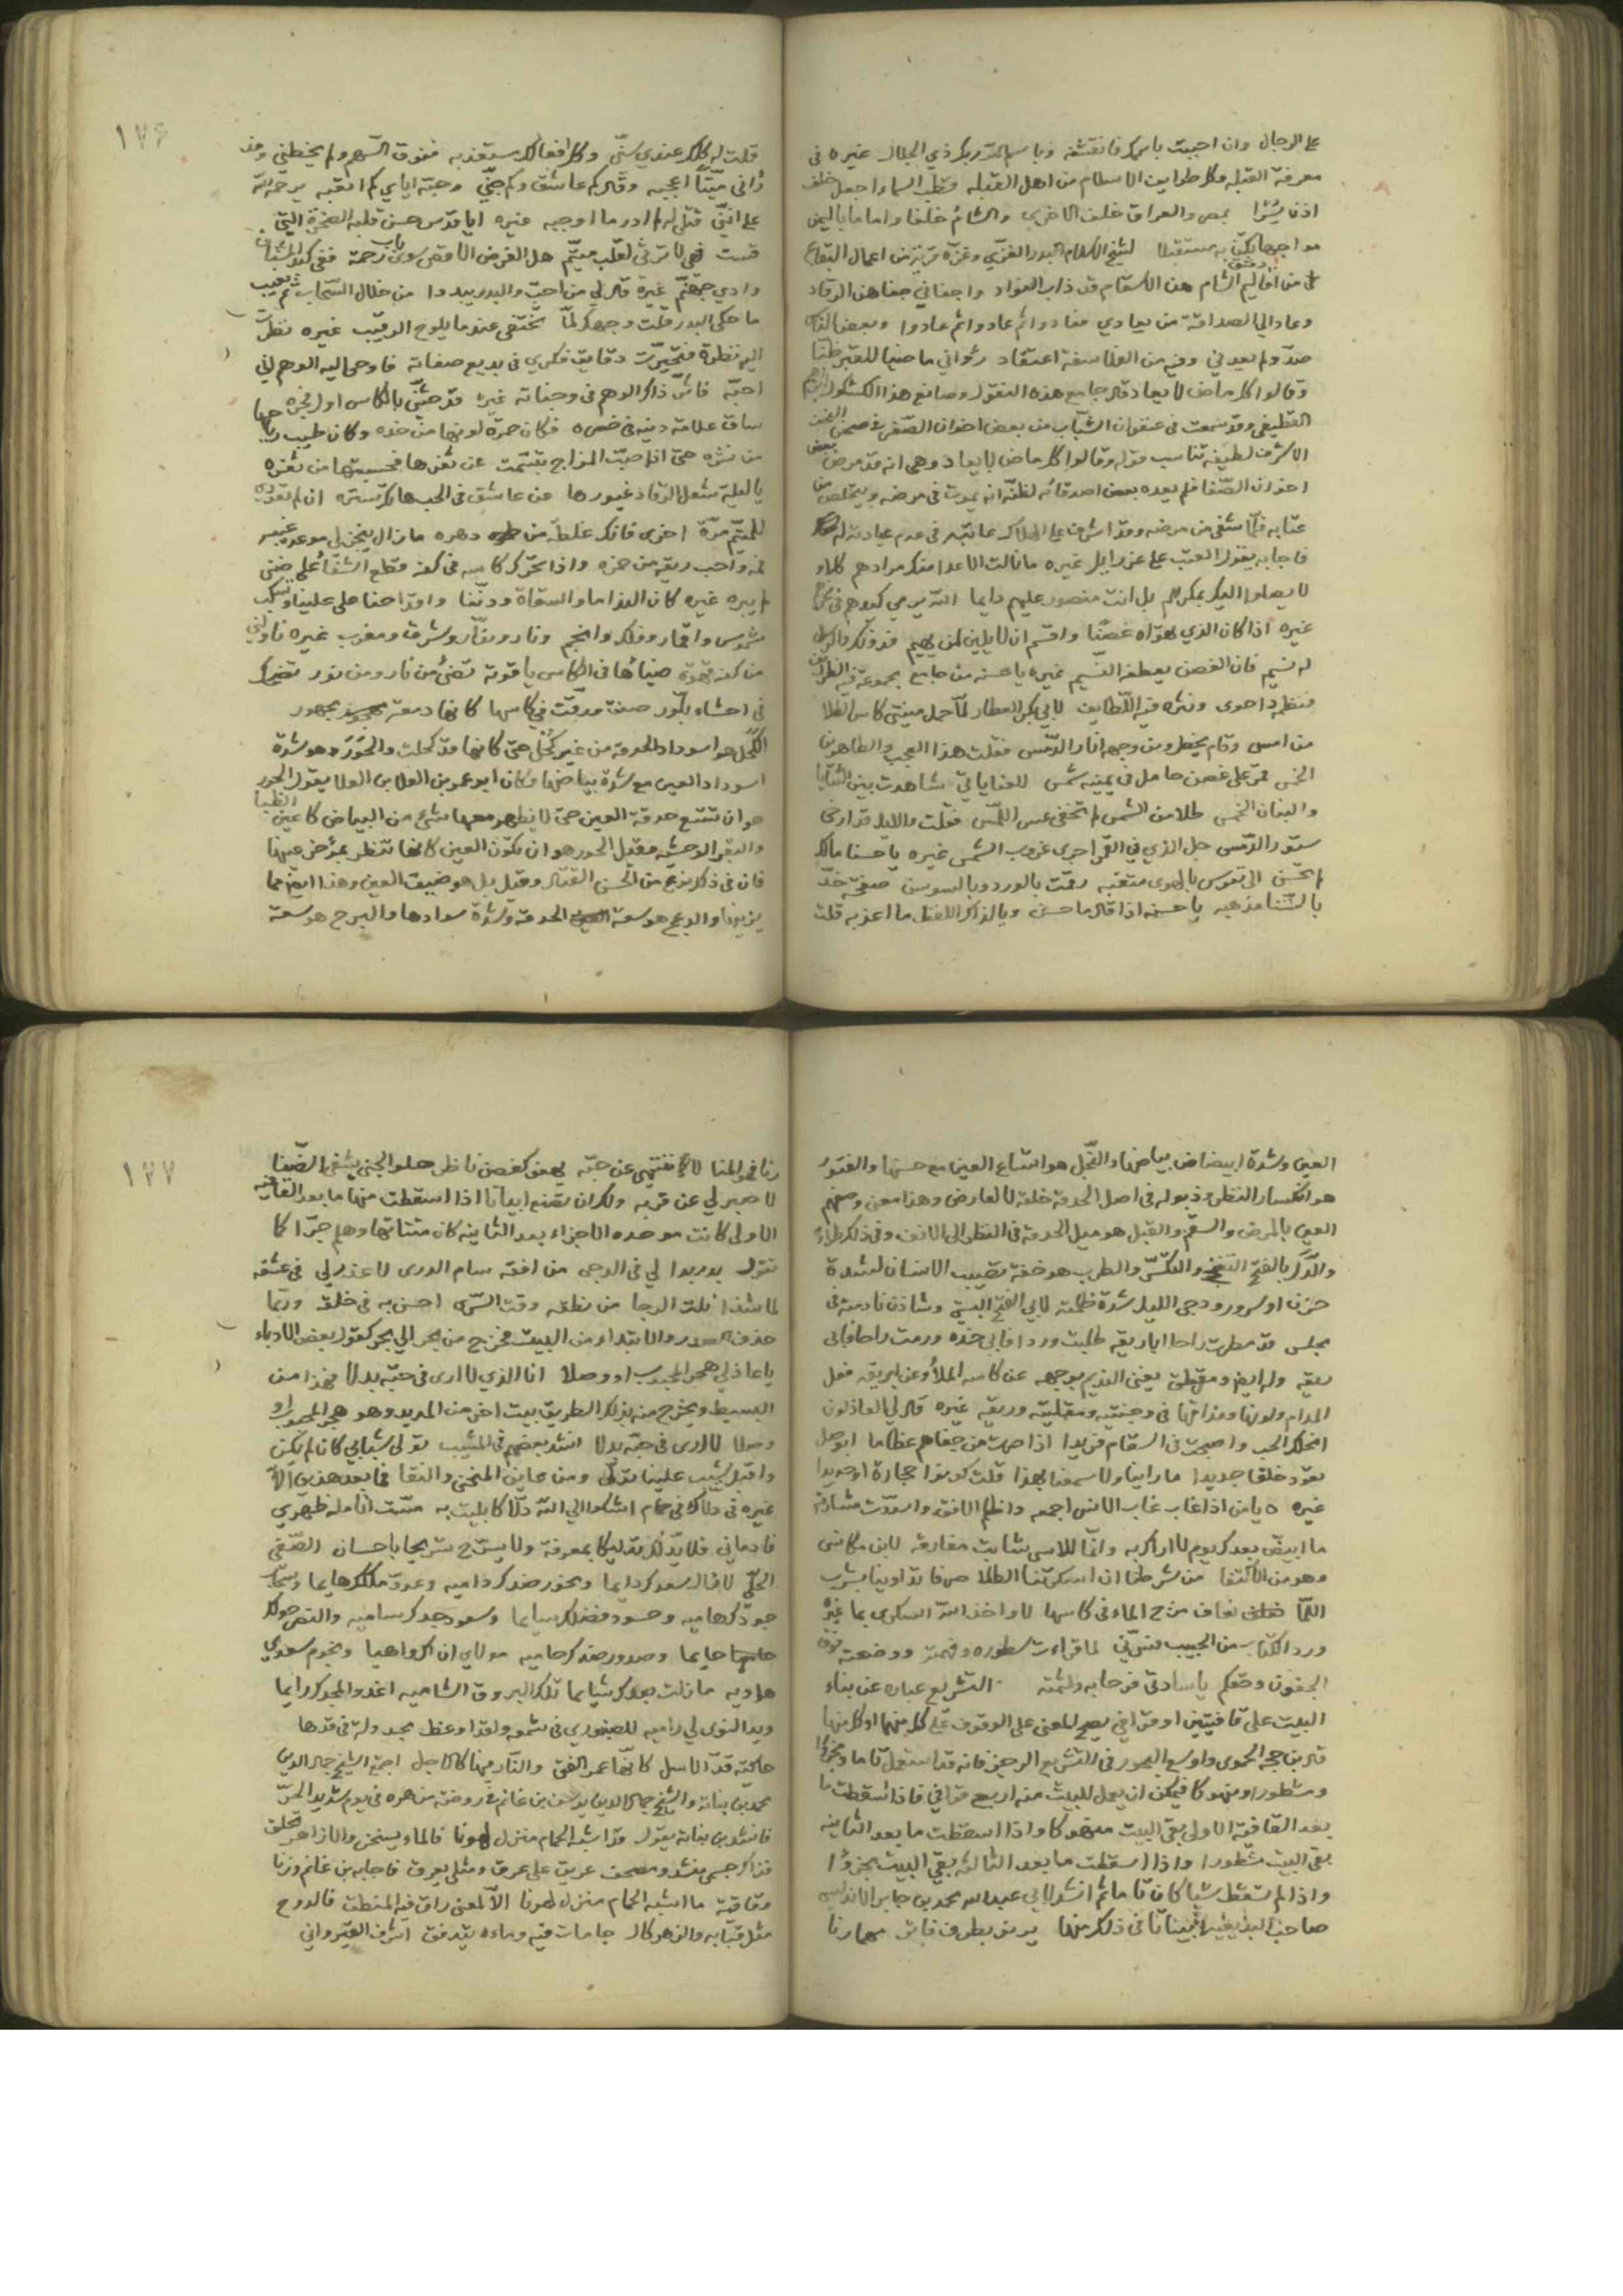 على الرجال وان اجبت باسمك فانقشه وباسم الله ربك ذي الجلال غيره فى
معرفة القبله وكل طوايف الاسلام من اهل القبله وقطب السما اجعل خلف
اذن يسرا بمصر والعراق خلف الاخرى والشام خلفا واماما باليمن
مواجها به مستقبلا لشيخ الاسلام البدر الغزي وغزه قرية من اعمال البقاع
من اقاليم الشام هن الاسقام قد ذاب الفواد واجفاني جفاهن الرقاد
وعاد الى الصداقة من يعادي فعادوا ثم عادوا ثم عادوا وبعض الناس
صد ولم يعدني وفيه من الفلاسفة اعتقاد رئواني ماضيا للقبر ظنا
وقالوا كل ماض لا يعاد قال جامع هذه النقول وصانع هذا الكشكول
القطيفى وقد سمعت فى عنفوان الشباب من بعض اخوان الصفى فى صحن النجف
الاشرف لطيفة تناسب قوله وقالوا كل ماض لا يعاد وهى انه قد مرض بعض
اخوان الصفا فلم يعده بعض اصدقائه لظنه انه يموت فى مرضه ويتخلص من
عتابه فلما شفى من مرضه وقد اشرف على الهلاك عاتبه فى عدم عيادته له
فاجابه بقوله العتب على عزرايل غيره ما نالت الاعدا منك مرادهم كلا و
لا يصلوا اليك بمكرهم بل انت منصور عليهم دايما الله يرمي كيدهم فى نحرهم
غيره اذا كان الذي تهواه غصنا واقسم ان لا يلين لمن يهيم فدونك
له نسيم فان الغصن يعطفه النسيم غيره يا حسنه من جامع مجموعة فيه الظرائف
فنظمه احوى ونثره فيه اللطايف لابي بكر العطار لما حمل منيتى كاس الطلا
من امس وقام يخطر ومن وجهه انار الدمس فقلت هذا العجب والطاهرين
الخمس قمر على غصن حامل فى يمينه شمس للعناياتي شاهدت بين الثنايا
والبنان الخمس طلا من الشمس لم تخفى عس اللمس فقلت والليل قد ارخى
ستور الدمس جل الذي فى القمر اجرى غروب الشمس غيره يا حسنا مالك
لم تحسن الى نفوس بالهوى متعبه رقمت بالورد وبالسوسن صفحة خد
بالسنا مذهبه يا حسنه اذا قال ما احسن ويا لذاك اللفظ ما اعذبه قلت
١٧٦
قلت له كلك عندي سنى وكل افعالك مستعذبه ففوق السهم ولم يخطني ومذ
رآنى ميتا اعجبه وقال كم عاشق وكم حبني وحبه اياي كم اتعبه يرحمه الله
على اننى قتلى له لم ادر ما اوجبه غيره ايا قدس حسن قلبه الصخرة التى
قست فهي لا ترثى لقلب متيم هل الفرض الاقصى سوى باب رحمة ففى كبد المشتاق
وادي جهنم غيره قال لي من احب والبدر يبدوا من خلال السحاب ثم يغيب
ما حكى البدر قلت وجهك لما يختفى عندما يلوح الرقيب غيره نظرت
اليه نظرة فتحيرت دقايق فكري فى بديع صفاته فاوحى اليه الوهم اني
احبه فاثر ذاك الوهم فى وجناته غيره قد حثنى بالكاس اول فجره
ساق علامة دينه فى خصره فكان حمرة لونها من خده وكان طيب رياحها
من نشره حتى اذا صب المزاج تبسمت عن ثغرها فحسبتها من ثغره
يا ليلة شغل الرقاد غيورها عن عاشق فى الحب هتك ستره ان لم تعودي
للمتيم مرة اخرى فانك غلطة من دهره ما زال ينجز لي موعد عنبر
فمه واحب ريقه من خمره واذا تحرك كاسه فى كفه قطع الشفاء على ضنى
غيره كان الندامى والسقاة ودننا واقداحنا حلى علينا وتسكب
شموس واقمار وفلك وانجم ونار ونوار وشرق ومغرب غيره ناولني
من كفه قهوة ضياءها فى الكاس ياقوتة تضئ من نار ومن نور تضحك
فى احشاء بلور صفت ورقت فى كاسها كانها دمعة مهجور
الكحل هو اسوداد الحدقة من غير كحل حتى كانها قد كحلت والحور هو شدة
اسوداد العين مع شدة بياضها وكان ابو عمرو بن العلا بن العلا يقول الحور
هو ان تتسع حدقة العين حتى لا يظهر معها شئ من البياض كاعين الظبا
والبقر الوحشيه وقيل الحور هو ان تكون العين كانها تنظر بمؤخر عينها
فان فى ذلك نوع من الحسن القتال وقيل بل هو ضيق العين وهذا ايضا مما
يزينها والدعج هو سعة الحدقة وشدة سوادها والبرج هو سعة
العين وشدة ابيضاض بياضها والنجل هو اتساع العين مع حسنها والفتور
هو انكسار النظر وذبوله فى اصل الحدقة خلقة لا لعارض وهذا معنى وصفهم
العين بالمرض والسقم والقبل هو ميل الحدقة فى النظر الى الانف وفى ذلك طراءة
والدل بالفتح التغنج والتكسر والطرب هو خفة تصيب الانسان لشدة
حزن او سرور ودجى الليل شدة ظلمته لابي الفتح البستي وشادن نادمته فى
مجلس قد مطرت راحا اباريقه طلبت وردا فابى خده ورمت راحا فابى
ريقه وله ايضا ومقرطق يغنى النديم بوجهه عن كاسه الملأى وعن ابريقه فعل
المدام ولونها ومذاقها فى وجنتيه ومقلتيه وريقه غيره قال لي العاذلون
انحلك الحب واصبحت فى السقام فريدا اذا صرت من جفاهم عظاما ابوصل
تعود خلقا جديدا ما راينا ولا سمعنا بهذا قلت كونوا حجارة او حديدا
غيره يا من اذا غاب غاب الانس اجمعه واظلم الافق واسودت مشارقه
ما ابيض بعدك يوم لا اراك به وانما للاسى شابت مفارقه لابن مكانس
وهو من الاكتفا من شرطنا ان اسكرتنا الطلا صرفا تداوينا بشرب
اللما نعاف مزج الماء فى كاسها لا واخذ الله السكرى بما غيره
ورد الكتاب من الحبيب فسرني لما قراءت سطوره وفهمته ووضعته فوق
الجفون وحقكم يا سادتى فرحا به ولثمته التشريع عباره عن بناء
البيت على قافيتين او قوافي يصح المعنى على الوقوف على كل منهما او كل منها
قال ابن حجه الحموي واوسع البحور فى التشريع الرجز فانه قد استعمل تاما ومجزوا
ومشطورا ومنهوكا فيمكن ان يعمل للبيت منه اربع قوافي فاذا اسقطت ما
بعد القافية الاولى بقى البيت منهوكا واذا اسقطت ما بعد الثانيه
بقى البيت مشطورا واذا اسقطت ما بعد الثالثه بقى البيت مجزوا
واذا لم تسقط شيا كان تاما ثم انشد لابي عبدالله محمد بن جابر الاندلسي
صاحب البديعيه ابياتا فى ذلك منها يرنو بطرف فاتر مهما رنا
١٧٧
رنا فهو المنا لا انتهى عن حبه يهفو كغصن ناظر حلو الجنى يشفى الضنا
لا صبر لي عن قربه ولك ان تصنع ابياتا اذا اسقطت منها ما بعد القافيه
الاولى كانت موحده الاجزاء بعد الثانيه كان مثناتها وهلم جرا كما
تقول بدر بدا لي فى الدجى من افقه سام الورى لا عذر لي فى عشقه
لما شدا نلت الرجا من نطقه وقت السرى احسن به فى خلقه وربما
حذف الصدر والابتداء من البيت فخرج من بحر الى بحر كقول بعض الادباء
يا عاذلي هجر المحبوب او وصلا انا الذي لا ارى فى حبه بدلا فهذا من
البسيط ويخرج منه بذلك الطريق بيت اخر من المديد وهو هجر المحبوب او
وصلا لا ارى فى حبه بدلا انشد بعضهم فى المشيب تولى شبابي كان لم يكن
واقبل شيب علينا تولى ومن عاين المنحنى والنقا فما بعد هذين الا
غيره فى دلاك فى حمام اشكوا الى الله دلاكا بليت به مست انامله ظهري
فادماني فلا يدلك تدليكا بمعرفة ولا يسرح تسريحا باحسان الصفى
الحلى لا زال سعدك دايما ونحور ضدك داميه وعدو ملكك هايما وسحاب
جودك هاميه وحسود فضلك ساما وسعود جدك ساميه والنصر حولك
حايما وصدور ضدك حاميه مولاي ان اك واهيا ونجوم سعدي
هاويه ما زلت بعدك شايما تلك البروق الشاميه اغدو المجدك رايما
ويد النوى لي راميه للصنوبري فى شمعه واقدا وعظ بجدوله فى قدها
حاكته قد الاسل كانها عمر الفتى والنار فيها كالاجل اجتمع الشيخ جمال الدين
محمد بن نباته والشيخ جمال الدين بن غانم فى روضة مزهره فى يوم شديد الحر
فانشد بن نباته يقول قد اشبه الحمام منزل لهونا فالماء يسخن والازاهر تحلق
فذاك جسمي منشد ومصحف عرق على عرق ومثلي يعرق فاجابه بن غانم وزنا
وقافية ما اشبه الحمام منزل لهونا الا لمعنى راق فيه المنطق فالدوح
مثل قبابه والزهر كال جامات فيه وماءه يتدفق اشرف القيرواني